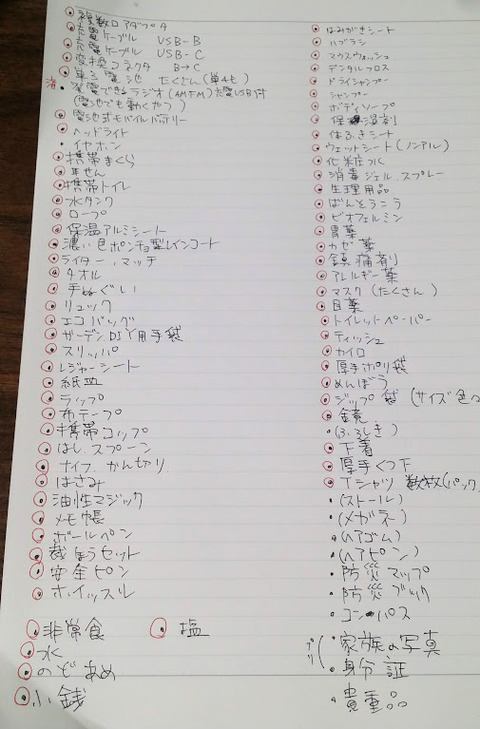 複数口アダプタ
充電ケーブル USB-B
充電ケーブル USB-C
変換コネクタ B→C
単3電池 たくさん(単4も)
済 発電できるラジオ(AMFM)充電USB付
(電池でも動くやつ)
電池式モバイルバッテリー
ヘッドライト
イヤホン
携帯まくら
耳せん
携帯トイレ
水タンク
ロープ
保温アルミシート
濃い色ポンチョ型レインコート
ライター、マッチ
タオル
手ぬぐい
リュック
エコバッグ
ガーデンDIY用手袋
スリッパ
レジャーシート
紙皿
ラップ
布テープ
携帯コップ
はし、スプーン
ナイフ かん切り
はさみ
油性マジック
メモ帳
ボールペン
裁ほうセット
安全ピン
ホイッスル
非常食
塩
水
のどあめ
小銭
はみがきシート
ハブラシ
マウスウォッシュ
デンタルフロス
ドライシャンプー
シャンプー
ボディソープ
保湿剤
体ふきシート
ウェットシート(ノンアル)
化粧水
消毒ジェル、スプレー
生理用品
ばんそうこう
ビオフェルミン
胃薬
カゼ薬
鎮痛剤
アレルギー薬
マスク(たくさん)
目薬
トイレットペーパー
ティッシュ
カイロ
厚手ポリ袋
めんぼう
ジップ袋(サイズ色々
鏡
(ふろしき)
下着
厚手くつ下
Tシャツ 数枚(パック)
(ストール)
(メガネ)
(ヘアゴム)
(ヘアピン)
防災マップ
防災ブック
コンパス
家族の写真
身分証
貴重品